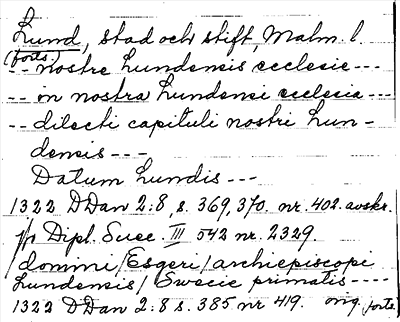 Lund, stad och stift, Malm. l.
(forts.)
-- nostre Lundensis ecclesie ---
-- in nostra Lundensi ecclesia ---
-- dilecti capituli nostri Lun-
densis ---
Datum Lundis ---
1322 DDan 2:8, s. 369, 370. nr. 402. avskr.
Dipl. Suec. III 542 nr. 2329.
/domini/Esgeri/archiepiscopi
Lundensis/Swecie primatis ----
1322 DDan 2:8 s. 385 nr 419. orig. (forts.)